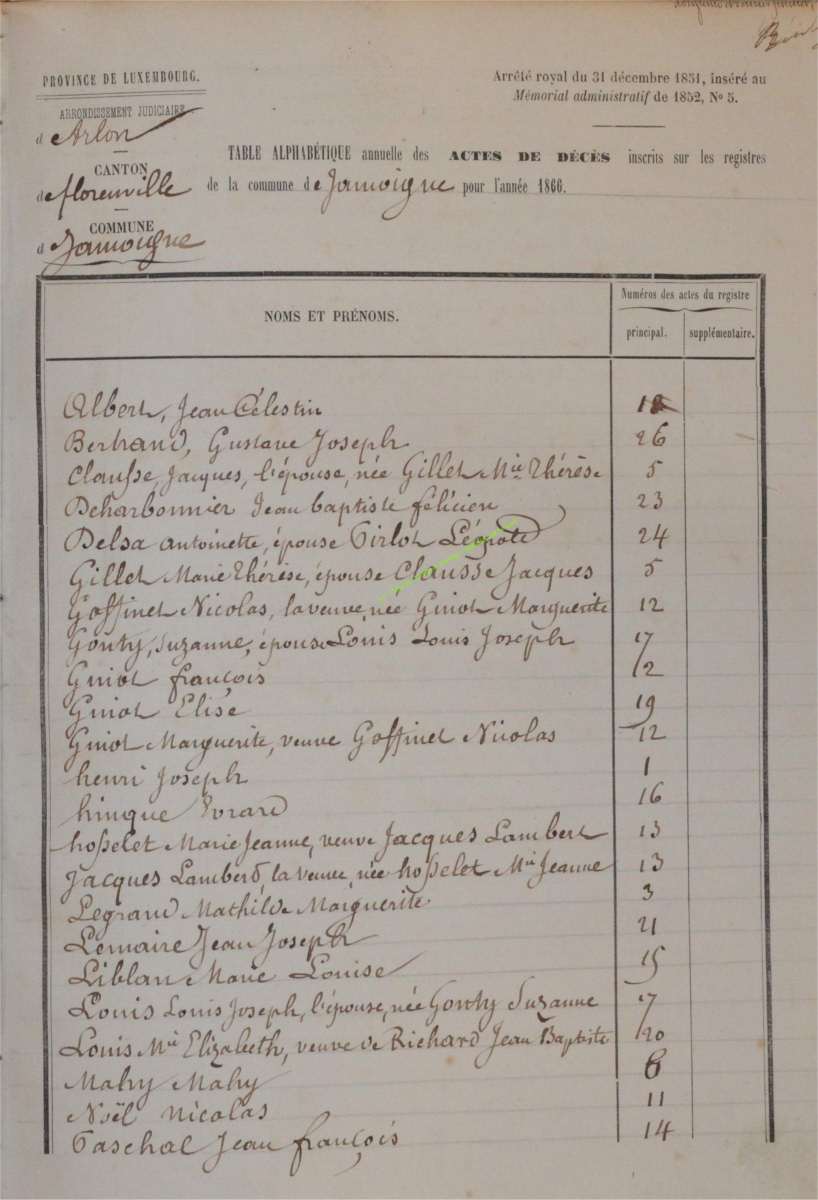 PROVINCE DE LUXEMBOURG.
Arrêté royal du 31 décembre 1851, inséré au
Mémorial administratif de 1852, No 5.
ARRONDISSEMENT JUDICIAIRE
d'Arlon
CANTON
de florenville
COMMUNE
d Jamoigne
TABLE ALPHABÉTIQUE annuelle des ACTES DE DÉCÈS inscrits sur les registres
de la commune de Jamoigne pour l'année 1866.
NOMS ET PRÉNOMS.
Numéros des actes du registre
principal. supplémentaire.
Albert, Jean Célestin
Bertrand, Gustave Joseph 26
Clausse, Jacques, l'épouse, née Gillet Mie Thérèse 5
Deharbonnier Jean baptiste félicien 23
Delsa antoinette, épouse Tirlot 24
Gillet Marie Thérèse, épouse Clausse Jacques 5
Goffinet Nicolas, la veuve, née Guiot Marguerite 12
Gouty, Suzanne, épouse Louis Louis Joseph 17
Guiot françois 2
Guiot Elise 19
Guiot Marguerite, veuve Goffinet Nicolas 12
henri Joseph 1
hinque 16
hosselet Marie Jeanne, veuve Jacques Lambert 13
Jacques Lambert, la veuve, née hosselet Mie Jeanne 13
Legrand Mathilde Marguerite 3
Lemaire Jean Joseph 21
Liblan Marie Louise 15
Louis Louis Joseph, l'épouse, née Gouty Suzanne 17
Louis Mie Elizabeth, veuve de Richard Jean Baptiste 20
Mahy Mahy 6
Noël nicolas 11
Paschal Jean françois 14